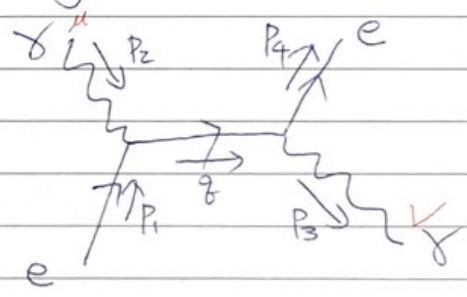 γ μ P₂ P₄ e
q
P₁ P₃ ν γ
e